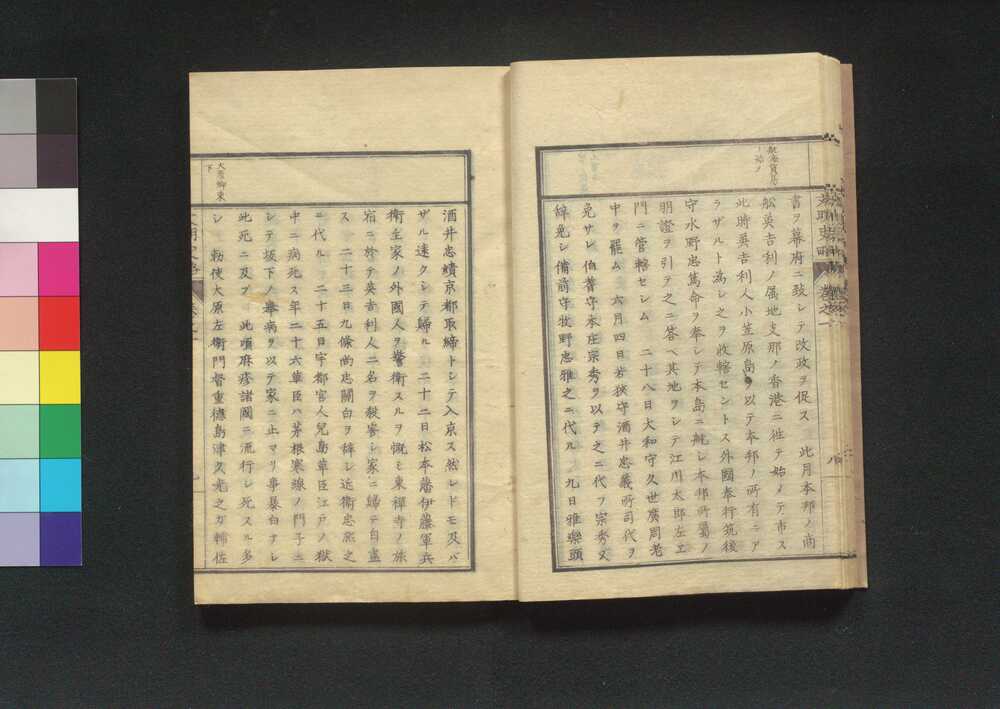 書ヲ幕府ニ致シテ改政ヲ促ス　此月本邦ノ商
舩英吉利ノ属地支那ノ香港ニ徃テ始メテ市ス
此時英吉利人小笠原島ヲ以テ本邦ノ所有ニア
ラザルト為シ之ヲ收轄セントス外國奉行筑後
守水野忠篤命ヲ奉シテ本島ニ航シ本邦所屬ノ
明證ヲ引テ之ニ答ヘ其地ヲシテ江川太郎左エ
門ニ管轄セシム　二十八日大和守久世廣周老
中ヲ罷ム　六月四日若狹守酒井忠義所司代ヲ
免サレ伯耆守本庄宗秀ヲ以テ之ニ代フ宗秀又
辞免シ備前守牧野忠雅之ニ代ル　九日雅樂頭
卷之一
八
大原卿東
下
酒井忠績京都取締トシテ入京ス然レドモ及バ
ザル速クシテ歸ル　二十二日松本藩伊藤軍兵
衛主家ノ外國人ヲ警衛スルヲ慨ミ東禪寺ノ旅
宿ニ於テ英吉利人二名ヲ殺害シ家ニ歸テ自盡
ス　二十三日九條尚忠關白ヲ辞シ近衛忠熈之
ニ代ル　二十五日宇都宮人兒島草臣江戸ノ獄
中ニ病死ス年二十六草臣ハ茅根寒緑ノ門子ニ
シテ坂下ノ擧病ヲ以テ家ニ止マリ事暴白サレ
此死ニ及ブ　此頃麻疹諸國ニ流行シ死スル多
シ　勅使大原左衛門督重德島津久光之カ輔佐